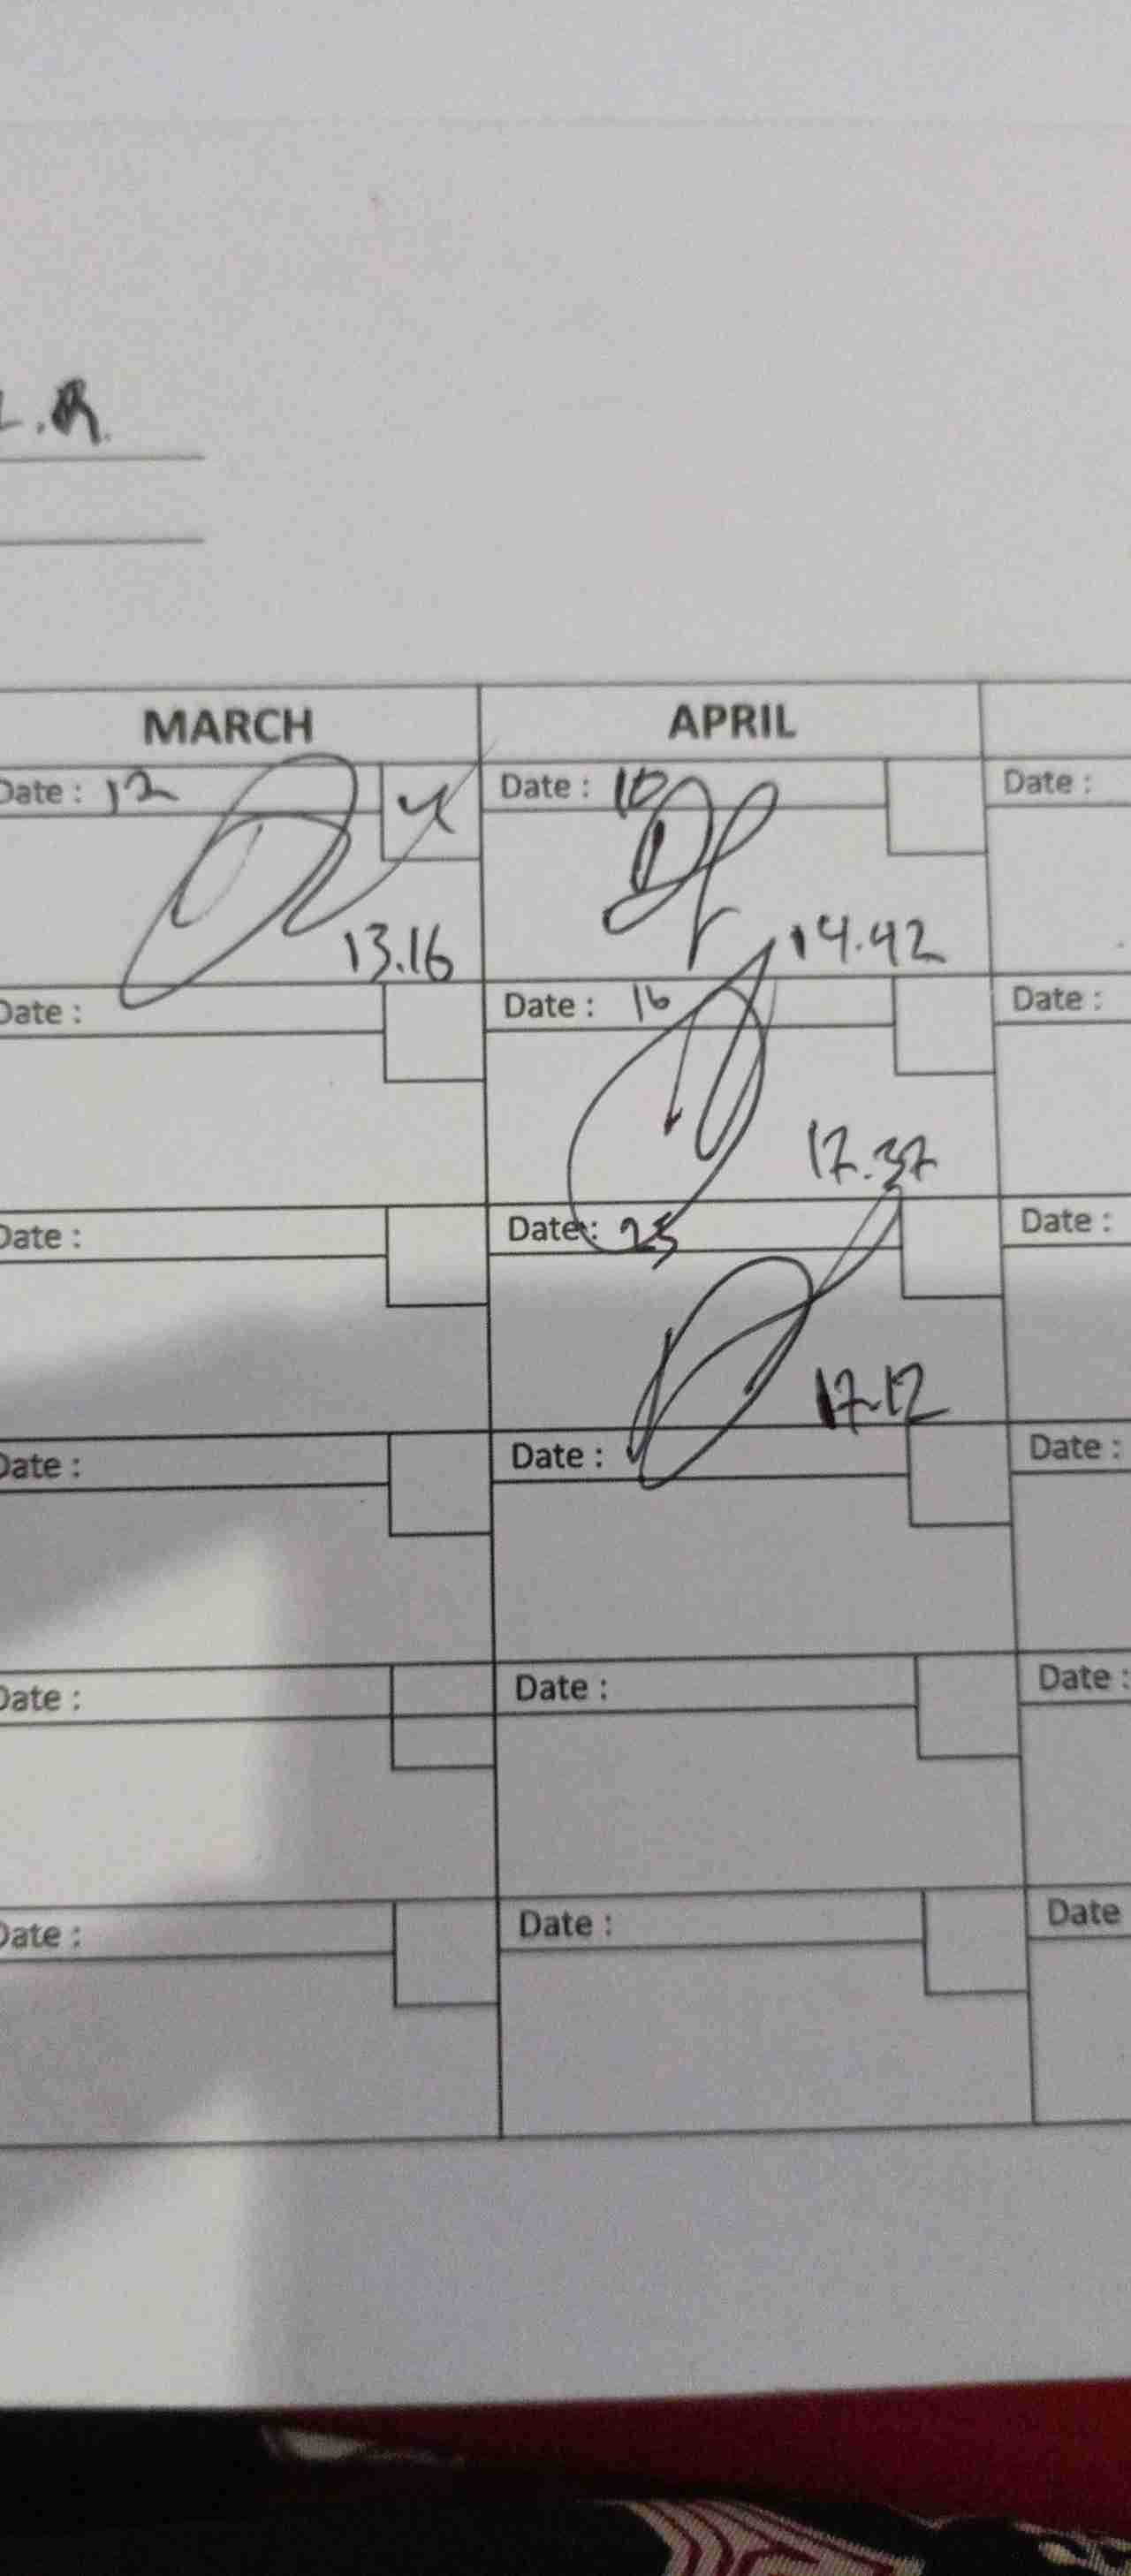 L.R.
MARCH APRIL
Date : 12 4 Date : 10 Date :
13.16 14.42
Date : Date : 16 Date :
17.37
Date : Date : 25 Date :
17.12
Date : Date : Date :
Date : Date : Date :
Date : Date : Date